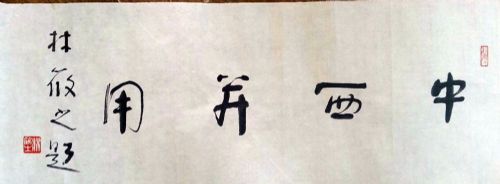 中西并用
林筱之题